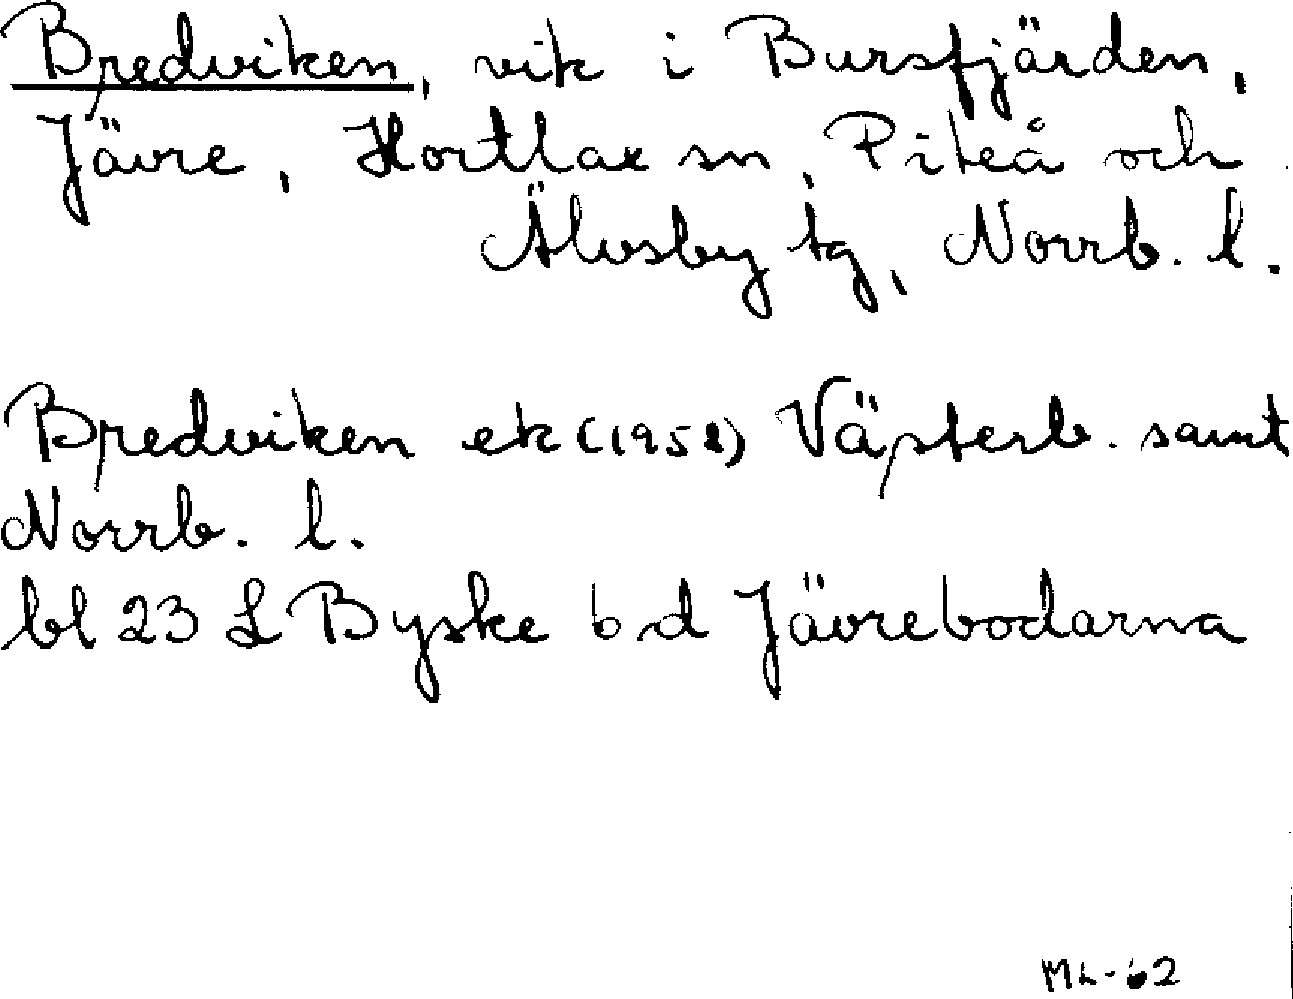 Bredviken, vik i Bursfjärden,
Jävre, Hortlax sn, Piteå och
Älvsby tg, Norrb. l.
Bredviken ek (1958) Västerb. samt
Norrb. l.
bl 23 L Byske 6 d Jävrebodarna
ML-62